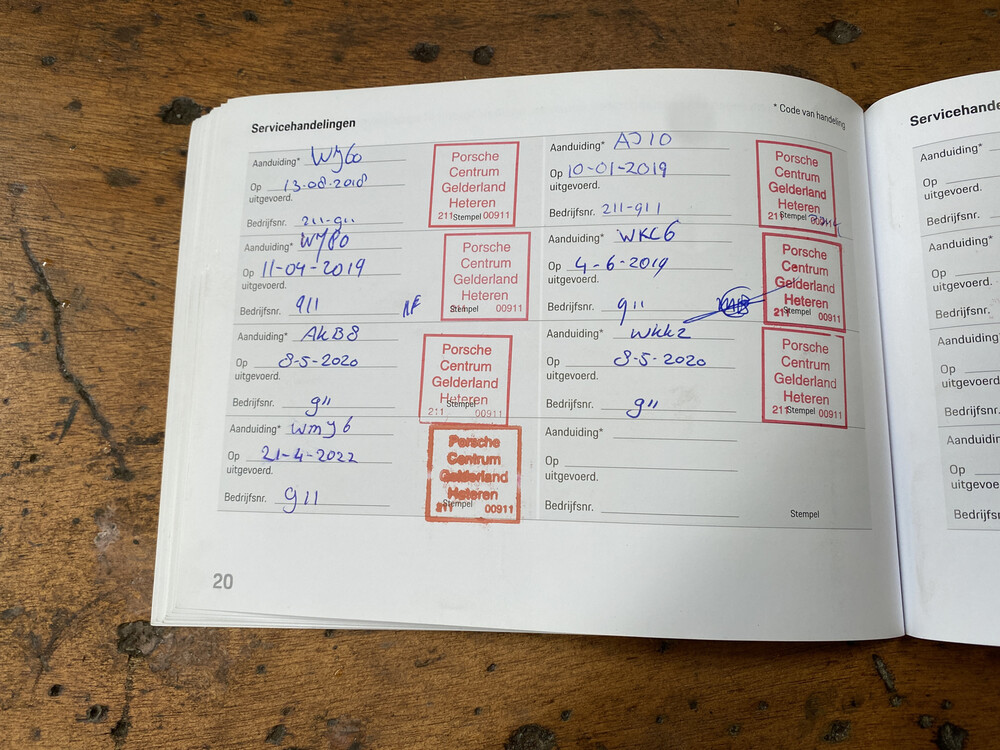 * Code van handeling
Servicehandelingen
Aanduiding* WY60
Op 13-08-2018
uitgevoerd.
Bedrijfsnr. 211-911
Porsche
Centrum
Gelderland
Heteren
211 Stempel 00911
Aanduiding* AJ10
Op 10-01-2019
uitgevoerd.
Bedrijfsnr. 211-911
Porsche
Centrum
Gelderland
Heteren
211 Stempel
Aanduiding* WY80
Op 11-04-2019
uitgevoerd.
Bedrijfsnr. 911
Porsche
Centrum
Gelderland
Heteren
Stempel 00911
Aanduiding* WKC6
Op 4-6-2019
uitgevoerd.
Bedrijfsnr. 911
Porsche
Centrum
Gelderland
Heteren
211 Stempel 00911
Aanduiding* AKB8
Op 8-5-2020
uitgevoerd.
Bedrijfsnr. 911
Porsche
Centrum
Gelderland
Heteren
211 Stempel 00911
Aanduiding* WKK2
Op 8-5-2020
uitgevoerd.
Bedrijfsnr. 911
Porsche
Centrum
Gelderland
Heteren
211 Stempel 00911
Aanduiding* WMY6
Op 21-4-2022
uitgevoerd.
Bedrijfsnr. 911
Porsche
Centrum
Gelderland
Heteren
211 Stempel 00911
Aanduiding*
Op
uitgevoerd.
Bedrijfsnr.
Stempel
20
Servicehande
Aanduiding*
Op
uitgevoerd.
Bedrijfsnr.
Aanduiding*
Op
uitgevoerd.
Bedrijfsnr.
Aanduiding*
Op
uitgevoerd.
Bedrijfsnr.
Aanduiding
Op
uitgevoe
Bedrijfsn